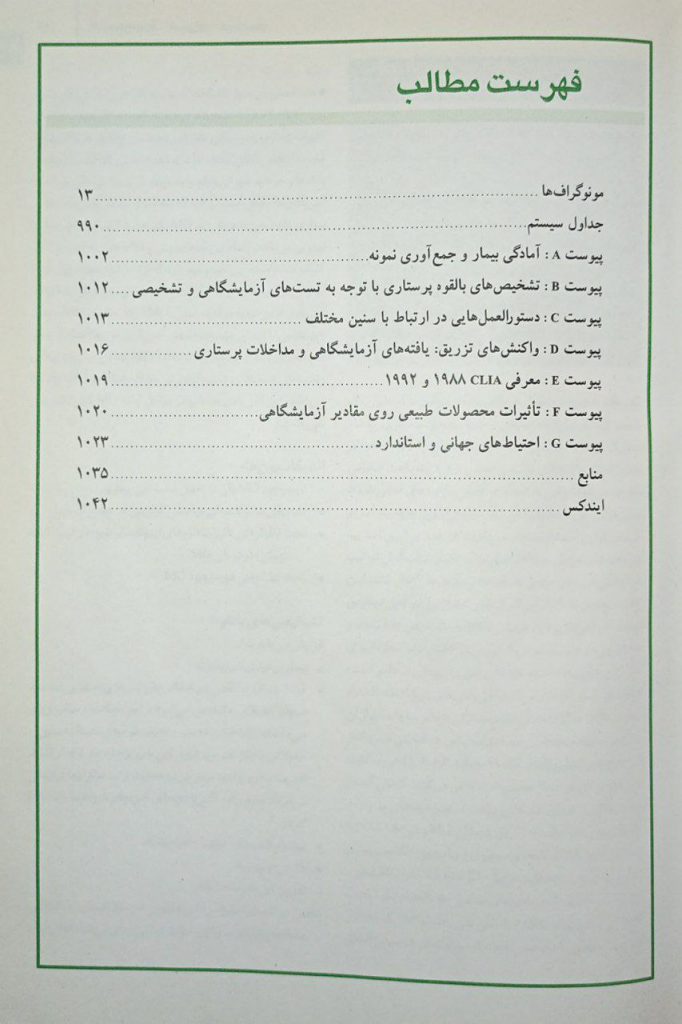 فهرست مطالب
مونوگراف‌ها ۱۳
جداول سیستم ۹۹۰
پیوست A : آمادگی بیمار و جمع‌آوری نمونه ۱۰۰۲
پیوست B : تشخیص‌های بالقوه پرستاری با توجه به تست‌های آزمایشگاهی و تشخیصی ۱۰۱۲
پیوست C : دستورالعمل‌هایی در ارتباط با سنین مختلف ۱۰۱۳
پیوست D : واکنش‌های تزریق: یافته‌های آزمایشگاهی و مداخلات پرستاری ۱۰۱۶
پیوست E : معرفی CLIA ۱۹۸۸ و ۱۹۹۲ ۱۰۱۹
پیوست F : تأثیرات محصولات طبیعی روی مقادیر آزمایشگاهی ۱۰۲۰
پیوست G : احتیاط‌های جهانی و استاندارد ۱۰۲۳
منابع ۱۰۳۵
ایندکس ۱۰۴۲